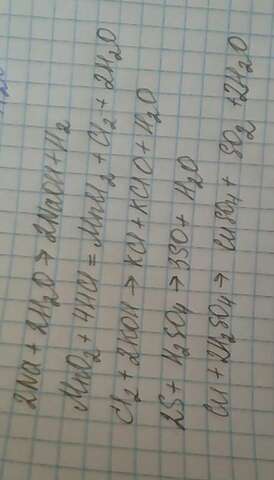 2Na + 2H₂O → 2NaOH + H₂
MnO₂ + 4HCl = MnCl₂ + Cl₂ + 2H₂O
Cl₂ + 2KOH → KCl + KClO + H₂O
2S + H₂SO₄ → 3SO + H₂O
Cu + 2H₂SO₄ → CuSO₄ + SO₂ + 2H₂O